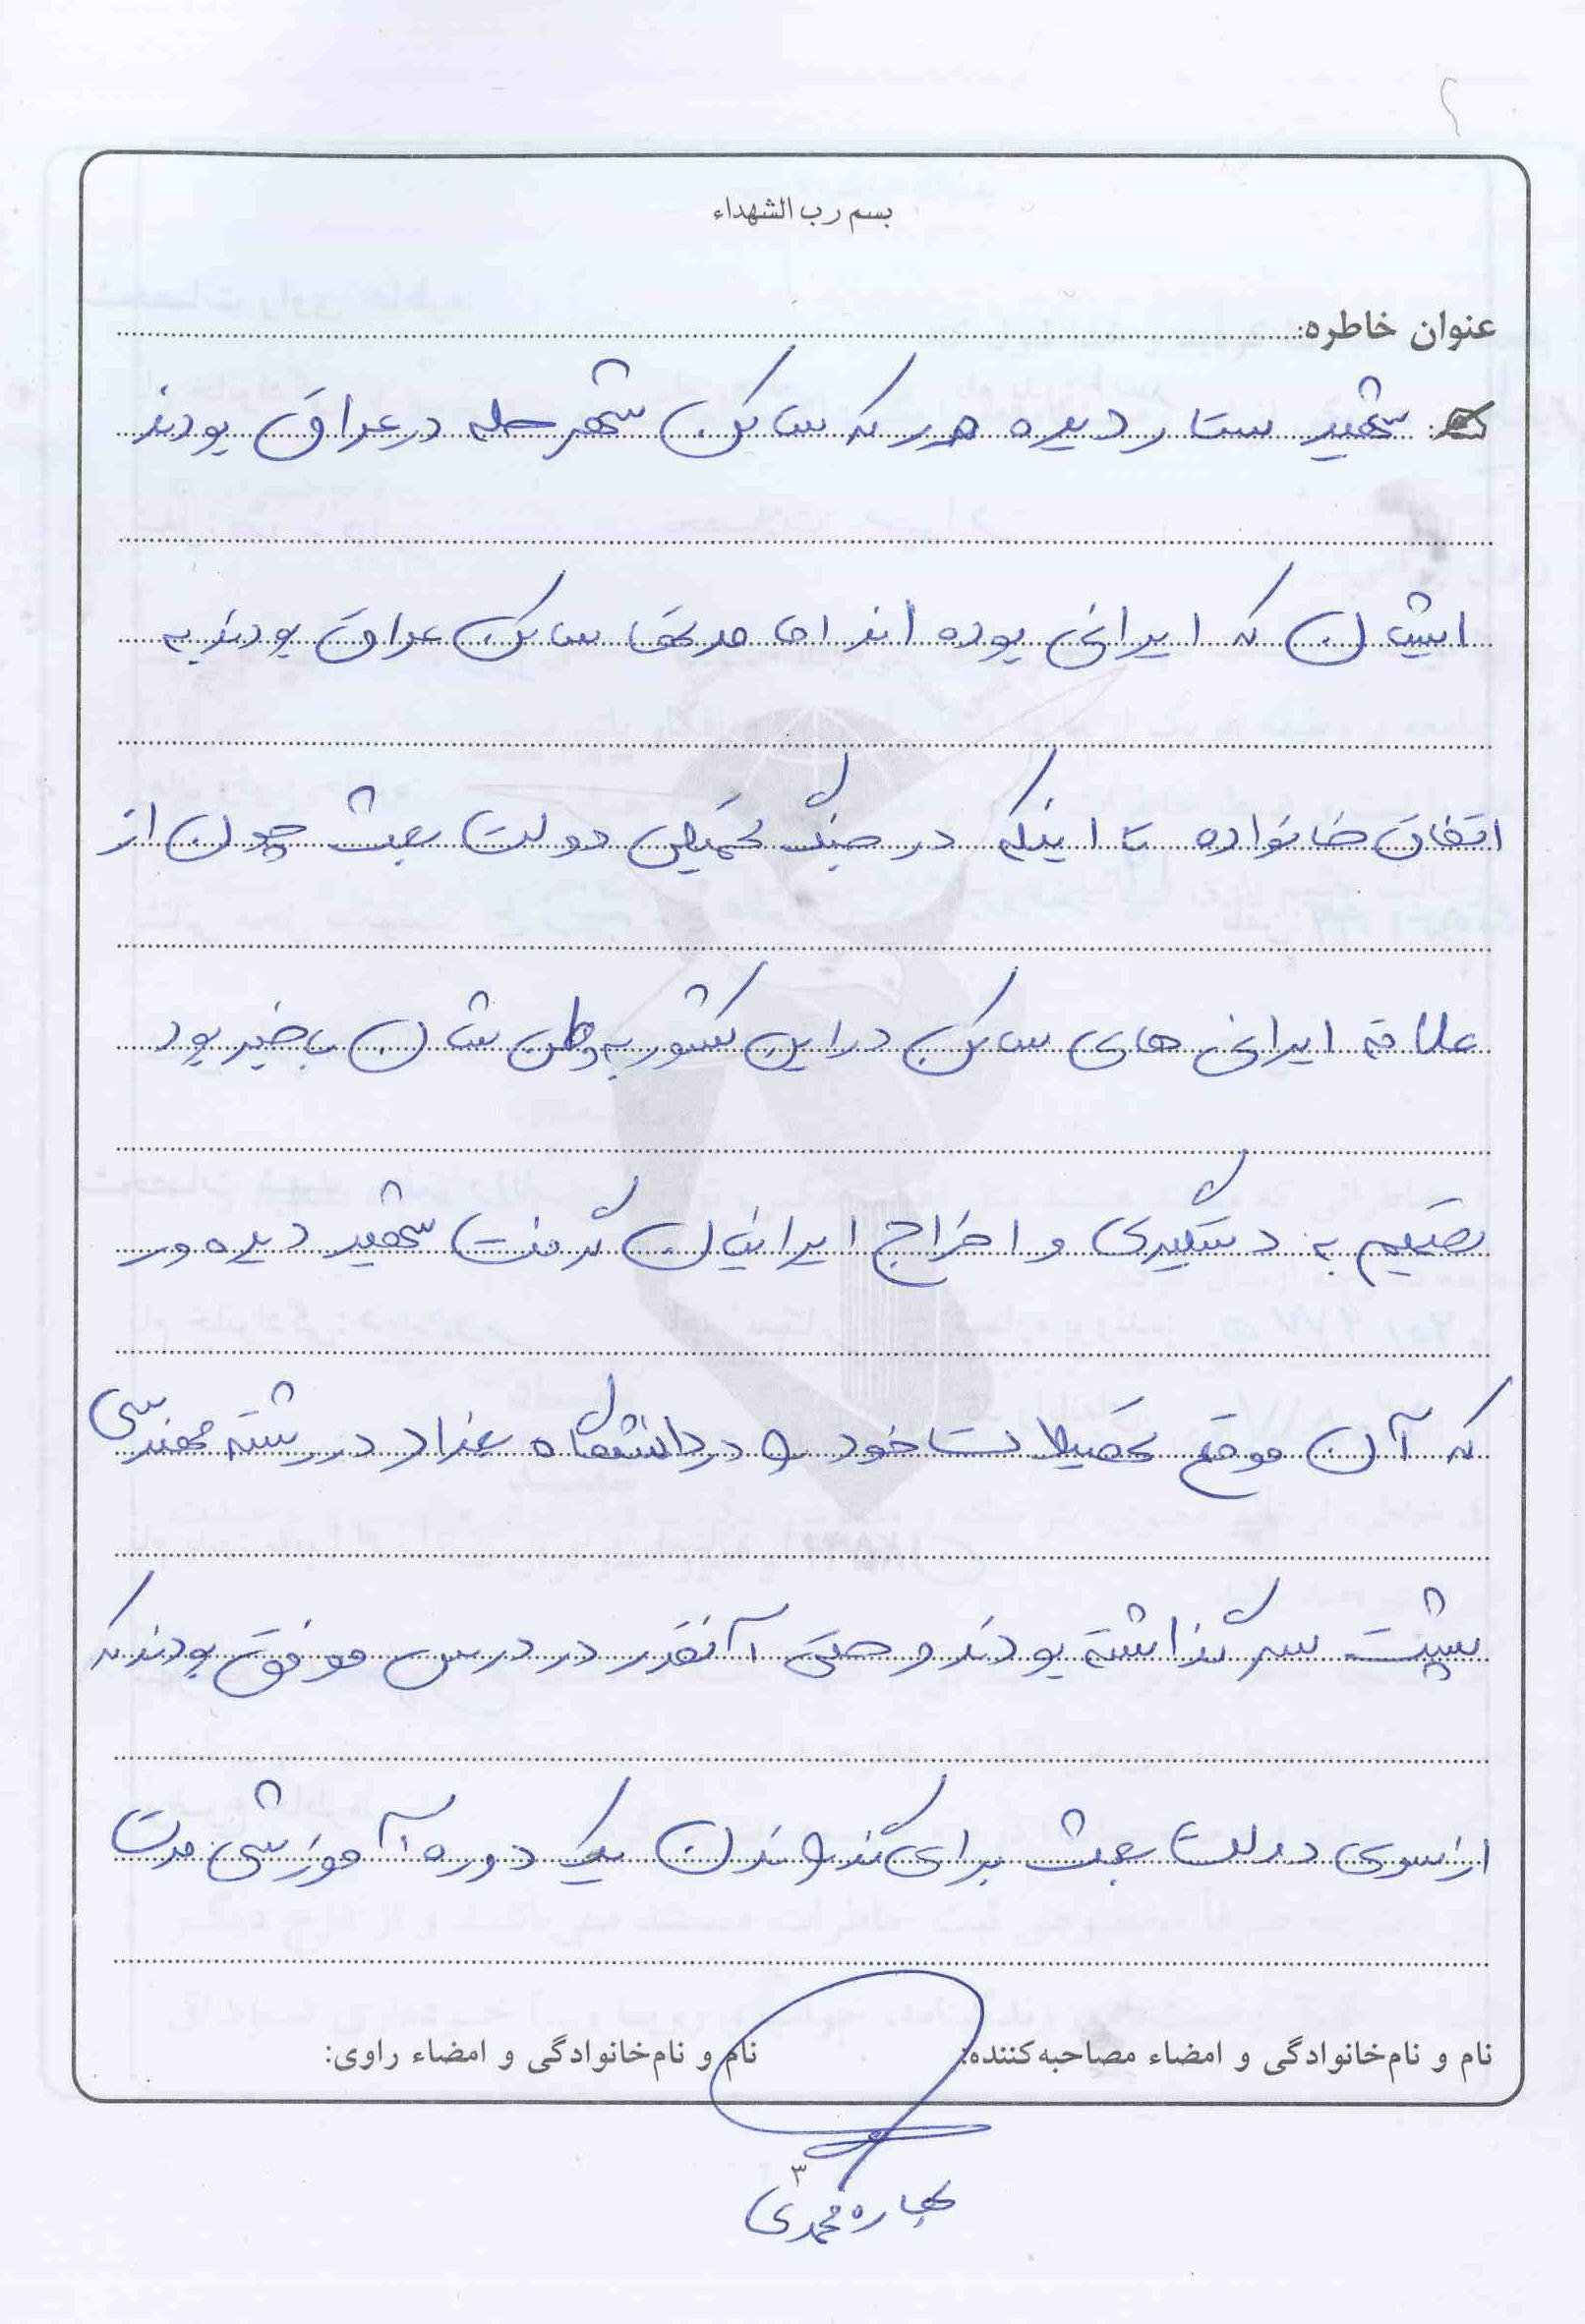 بسم رب الشهداء
عنوان خاطره:
شهید ستار دیده ور که ساکن شهر حله در عراق بودند
ایشان که ایرانی بوده اند اما مدتها ساکن عراق بودند به
اتفاق خانواده تا اینکه در جنگ تحمیلی دولت بعث چون از
علاقه ایرانی های ساکن در این کشور به وطن شان باخبر بود
تصمیم به دستگیری و اخراج ایرانیان گرفت شهید دیده ور
که آن موقع تحصیلات خود را در دانشگاه بغداد در رشته مهندسی
پشت سر گذاشته بودند و حتی آنقدر در درس موفق بودند که
از سوی دولت بعث برای گذراندن یک دوره آموزشی مدت
نام و نام‌خانوادگی و امضاء مصاحبه‌کننده:
نام و نام‌خانوادگی و امضاء راوی:
۳
بهاره محمدی